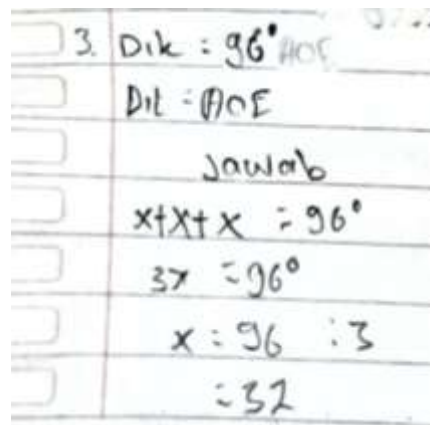 3. Dik : 96° AOE
Dit : AOE
Jawab
x+x+x = 96°
3x = 96°
x = 96 : 3
= 32